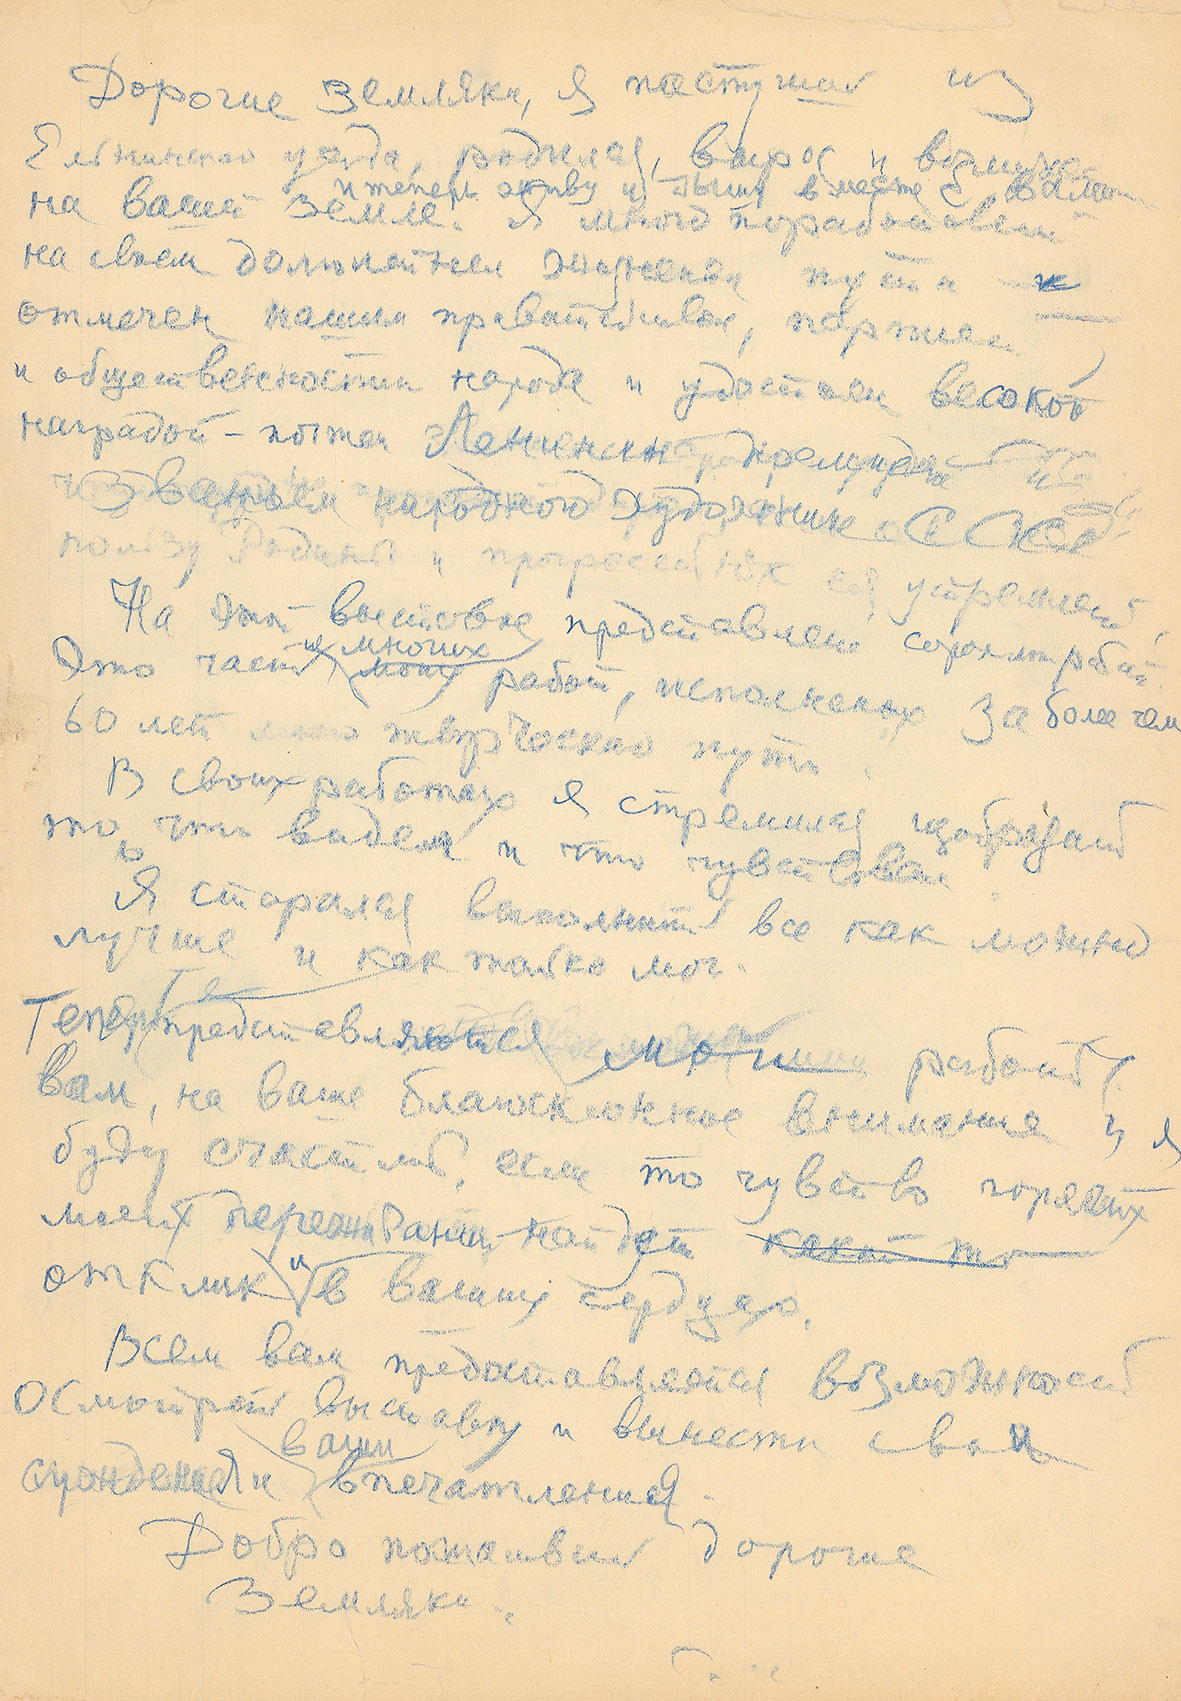 Дорогие земляки, я пастушок из
Ельнинского уезда, родился, вырос и возмужал
и теперь живу и дышу вместе с вами
на вашей земле. Я много поработавший
на своем долголетнем жизненном пути
отмечен нашим правительством, партией
и общественностью народа и удостоен высокой
наградой – почтен Ленинской премией и
званием народного художника СССР
пользу Родины и прогрессивных её устремлений,
На этой выставке представлено сорок работ.
Это часть из многих моих работ, исполненых за более чем
60 лет моего творческого пути.
В своих работах я стремился изображать
то, что видел и что чувствовал.
Я старался выполнить все как можно
лучше и как только мог.
Теперь представляются мои работы
вам, на ваше благосклонное внимание и я
буду счастлив, если то чувство горячих
моих переживаний найдет какой то
отклик и в ваших сердцах.
Всем вам предоставляется возможность
осмотреть выставку и вынести свои
суждения и ваши впечатления.
Добро пожаловать дорогие
земляки.